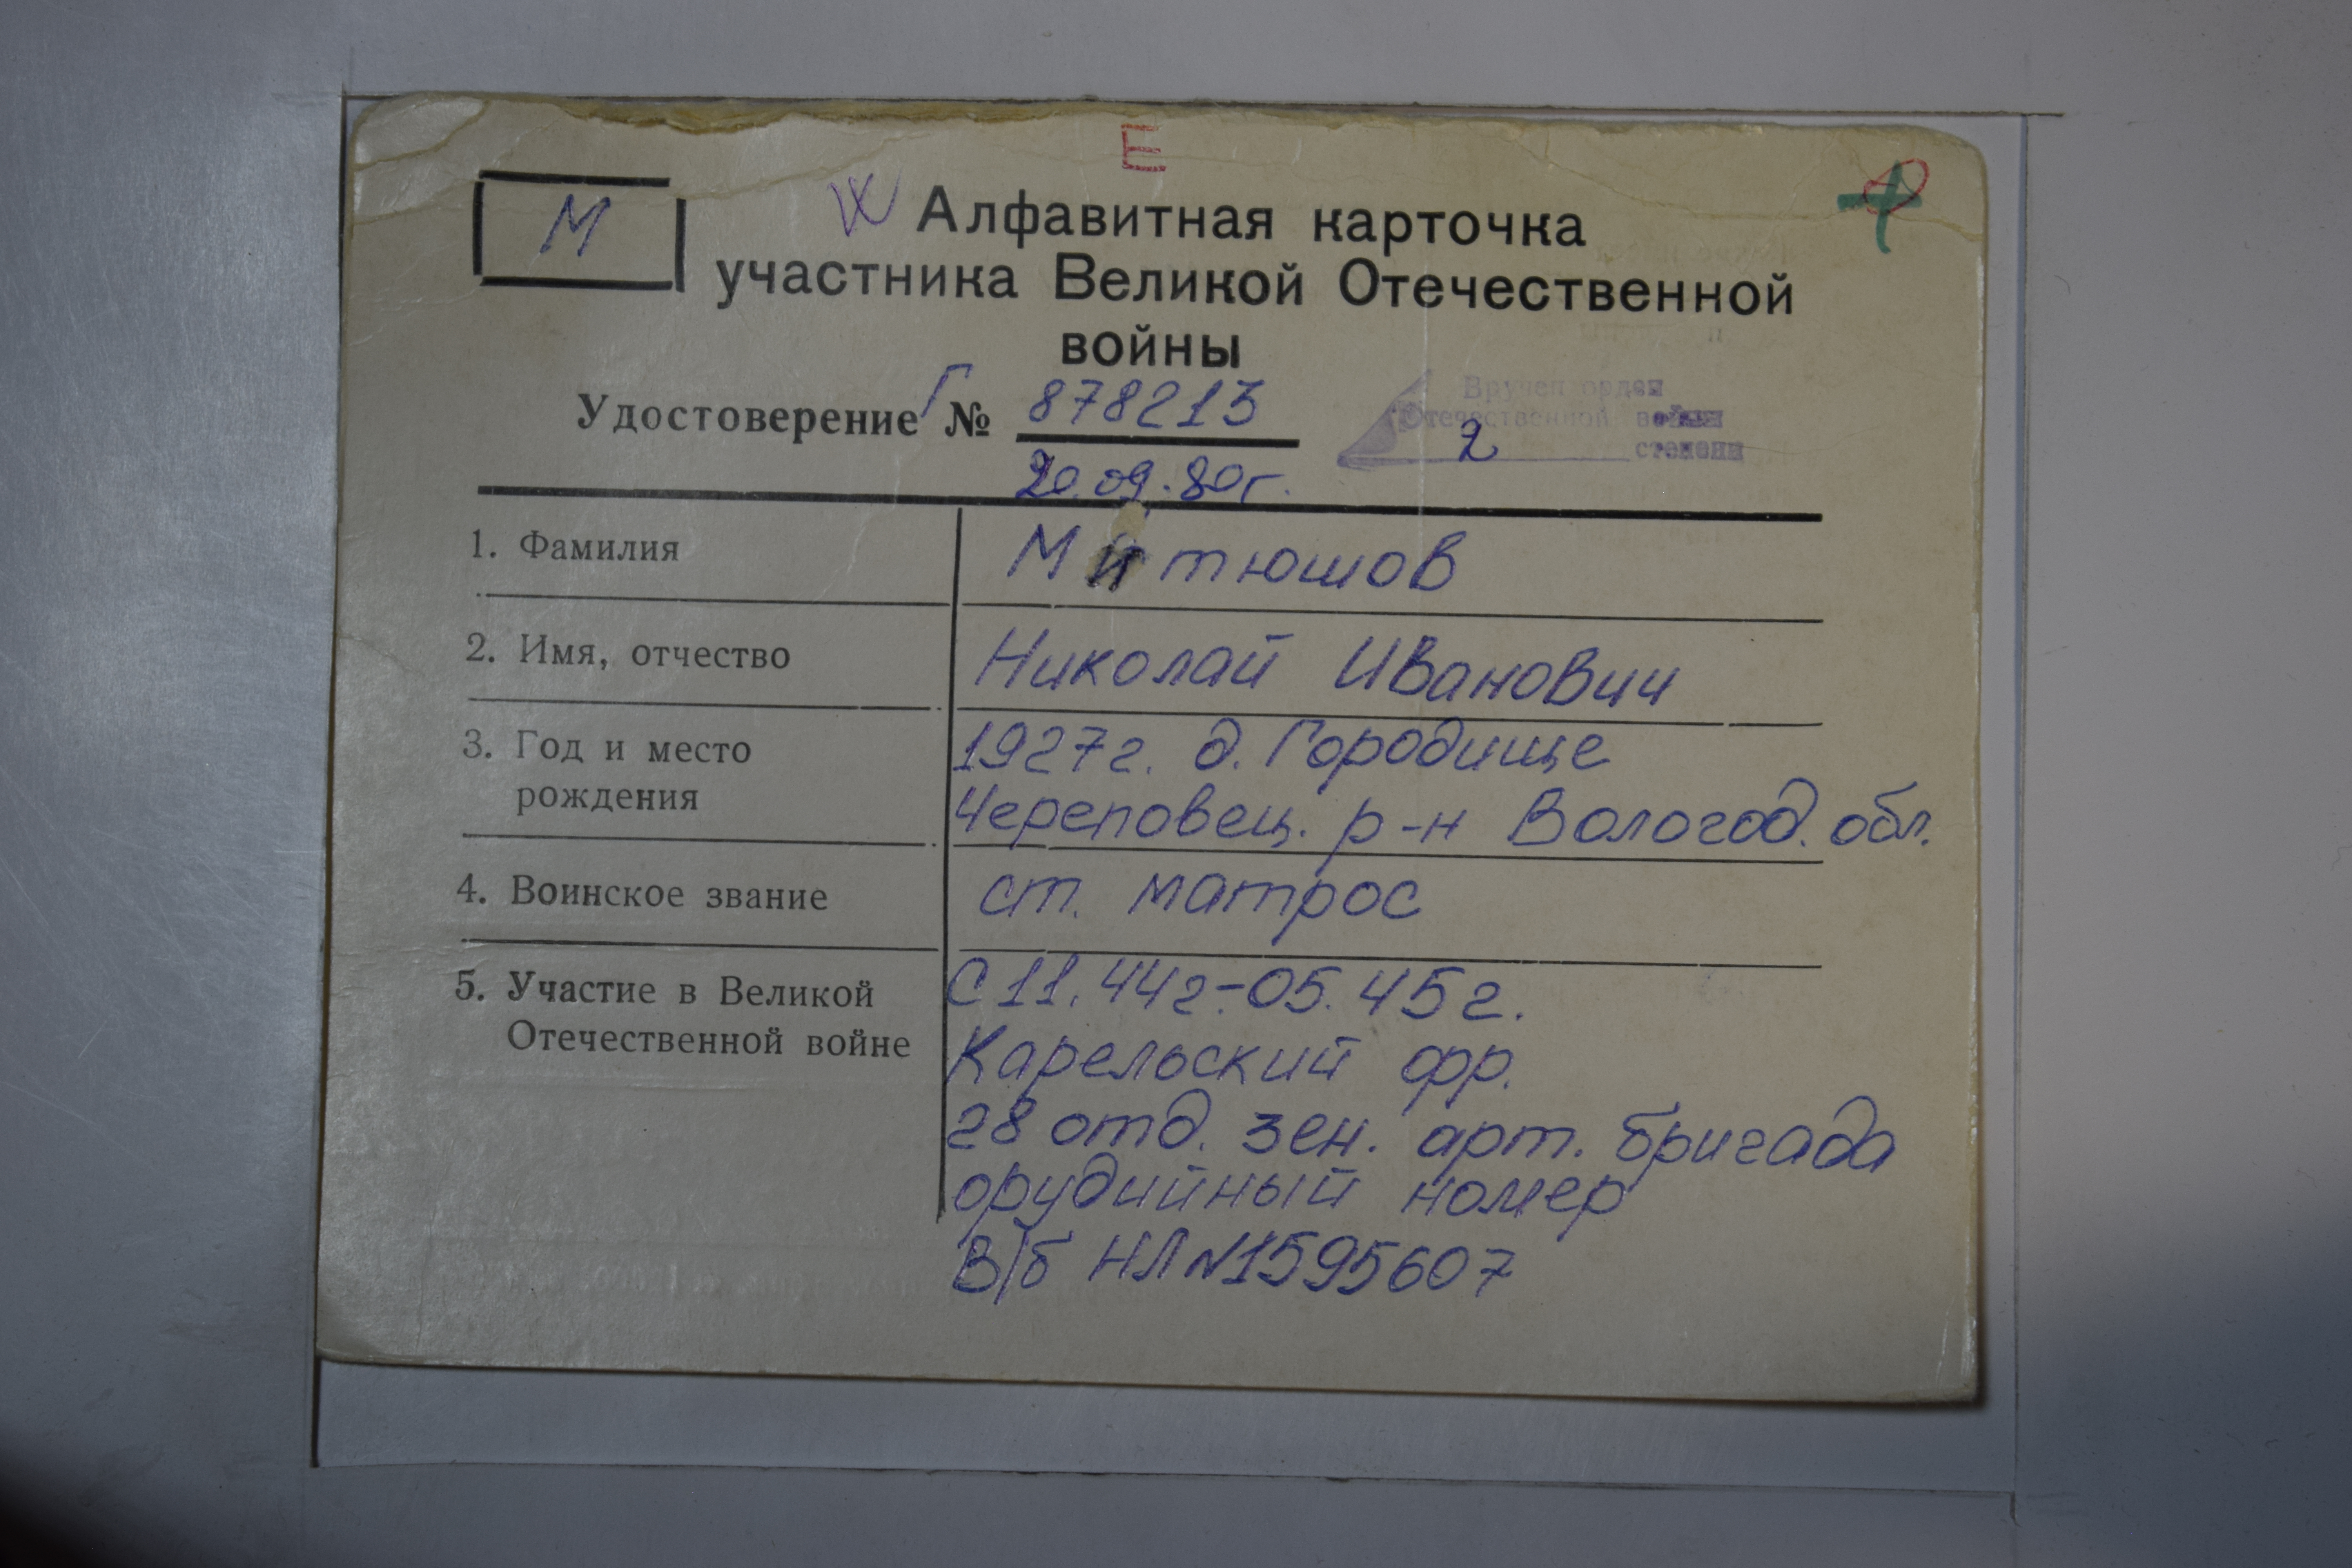 Е
М
Алфавитная карточка
участника Великой Отечественной
войны
Удостоверение Г № 878213
20.09.80г.
Вручен орден
Отечественной войны
2 степени
1. Фамилия
Митюшов
2. Имя, отчество
Николай Иванович
3. Год и место
рождения
1927г. д. Городище
Череповец. р-н Вологод. обл.
4. Воинское звание
ст. матрос
5. Участие в Великой
Отечественной войне
С 11.44г.-05.45г.
Карельский фр.
28 отд. зен. арт. бригада
орудийный номер
В/б НЛ N1595607